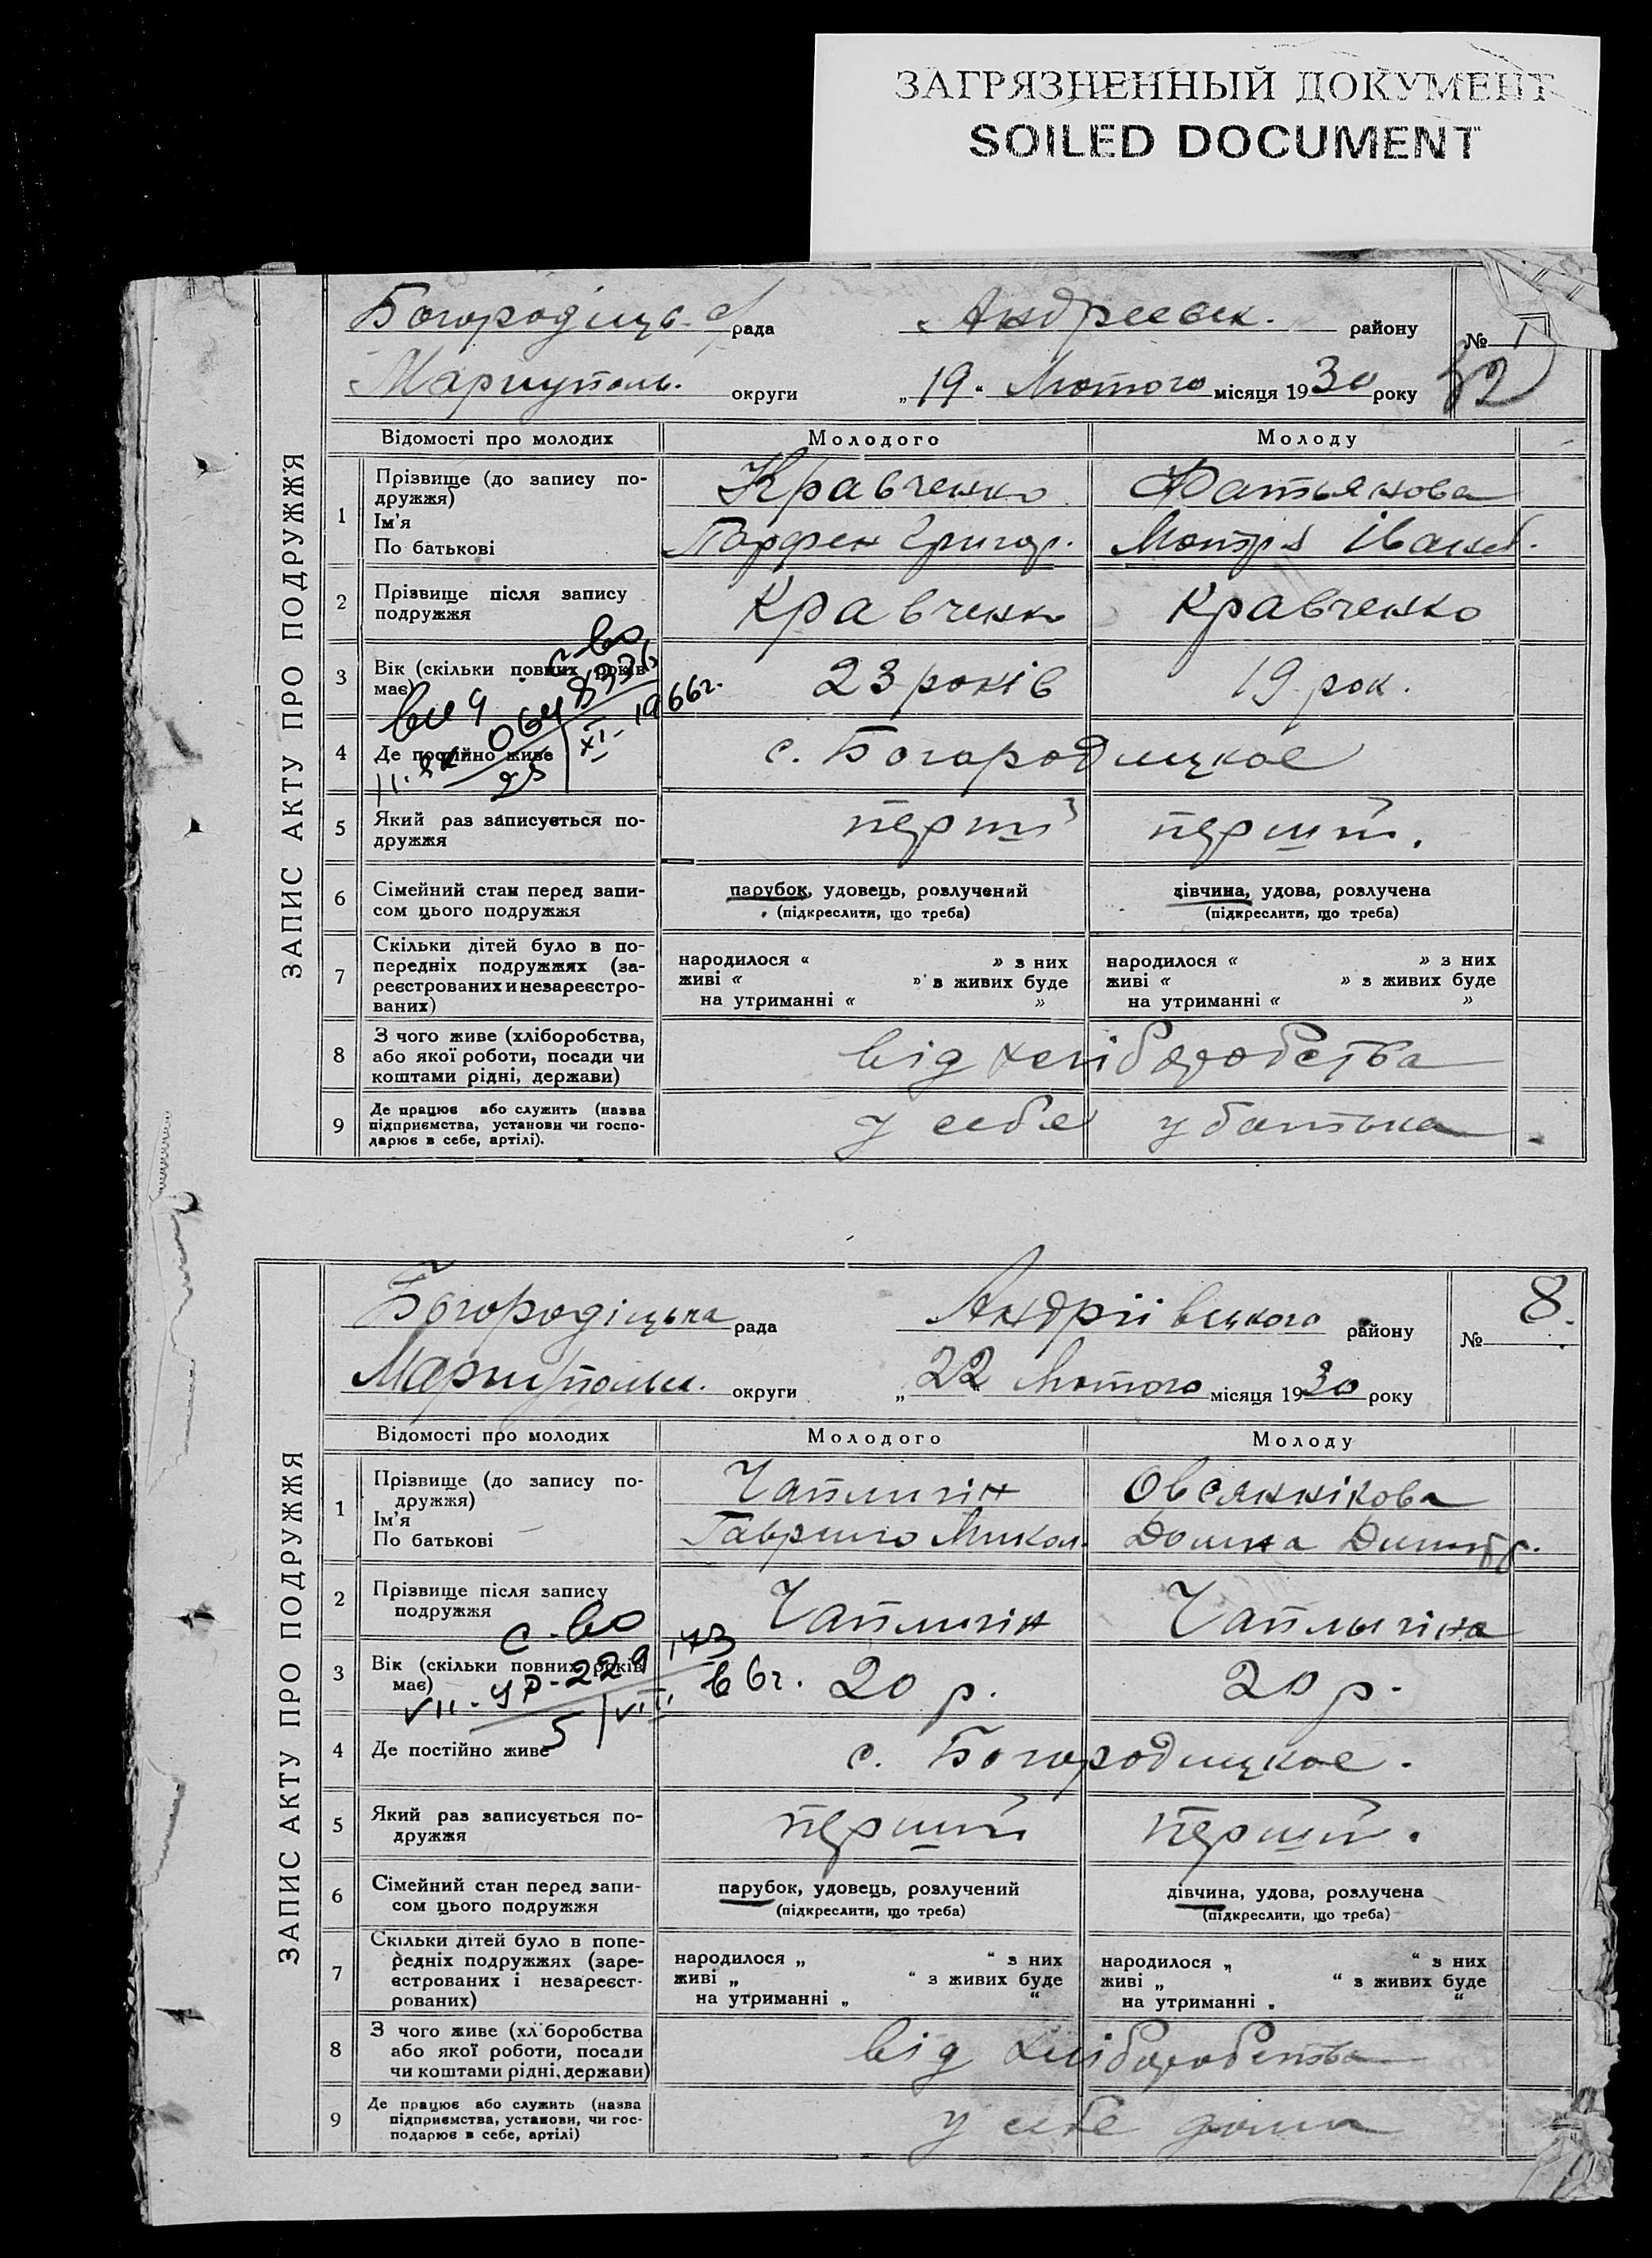 ЗАГРЯЗНЕННЫЙ ДОКУМЕНТ
SOILED DOCUMENT
ЗАПИС АКТУ ПРО ПОДРУЖЖЯ
Богородіцьк. рада Андреевск. району №
Мариуполь. округи „19“ Лютого місяця 1930 року
Відомості про молодих Молодого Молоду
1 Прізвище (до запису по-
дружжя)
Ім'я
По батькові
Кравченко Фатьянова
Парфен Григор. Мотря Іванов.
2 Прізвище після запису
подружжя
Кравченко Кравченко
с-во
3 Вік (скільки повних років
має)
23 років 19 рок.
XI- 1966г.
4 Де постійно живе
с. Богородицкое
5 Який раз записується по-
дружжя
перший перший.
6 Сімейний стан перед запи-
сом цього подружжя
парубок, удовець, розлучений дівчина, удова, розлучена
(підкреслити, що треба) (підкреслити, що треба)
7 Скільки дітей було в по-
передніх подружжях (за-
реєстрованих и незареєстро-
ваних)
народилося « » з них народилося « » з них
живі « » з живих буде живі « » з живих буде
на утриманні « » на утриманні « »
8 З чого живе (хліборобства,
або якої роботи, посади чи
коштами рідні, держави)
від хліборобства
9 Де працює або служить (назва
підприємства, установи чи госпо-
дарює в себе, артілі).
у себе у батька
ЗАПИС АКТУ ПРО ПОДРУЖЖЯ
Богородіцька рада Андріївцкого району № 8.
Мариупольск. округи „22“ Лютого місяця 1930 року
Відомості про молодих Молодого Молоду
1 Прізвище (до запису по-
дружжя)
Ім'я
По батькові
Чаплигін Овсяннікова
Гаврило Микол. Домна Дмитр.
2 Прізвище після запису
подружжя
Чаплигін Чаплыгіна
с-во
3 Вік (скільки повних років
має)
VII-УР-229173
66г. 20 р. 20 р.
5 VIII
4 Де постійно живе
с. Богородицкое.
5 Який раз записується по-
дружжя
перший перший.
6 Сімейний стан перед запи-
сом цього подружжя
парубок, удовець, розлучений дівчина, удова, розлучена
(підкреслити, що треба) (підкреслити, що треба)
7 Скільки дітей було в попе-
редніх подружжях (заре-
єстрованих і незареєст-
рованих)
народилося „ “ з них народилося „ “ з них
живі „ “ з живих буде живі „ “ з живих буде
на утриманні „ “ на утриманні „ “
8 З чого живе (хліборобства
або якої роботи, посади
чи коштами рідні, держави)
від хліборобства
9 Де працює або служить (назва
підприємства, установи, чи гос-
подарює в себе, артілі)
у себе дома